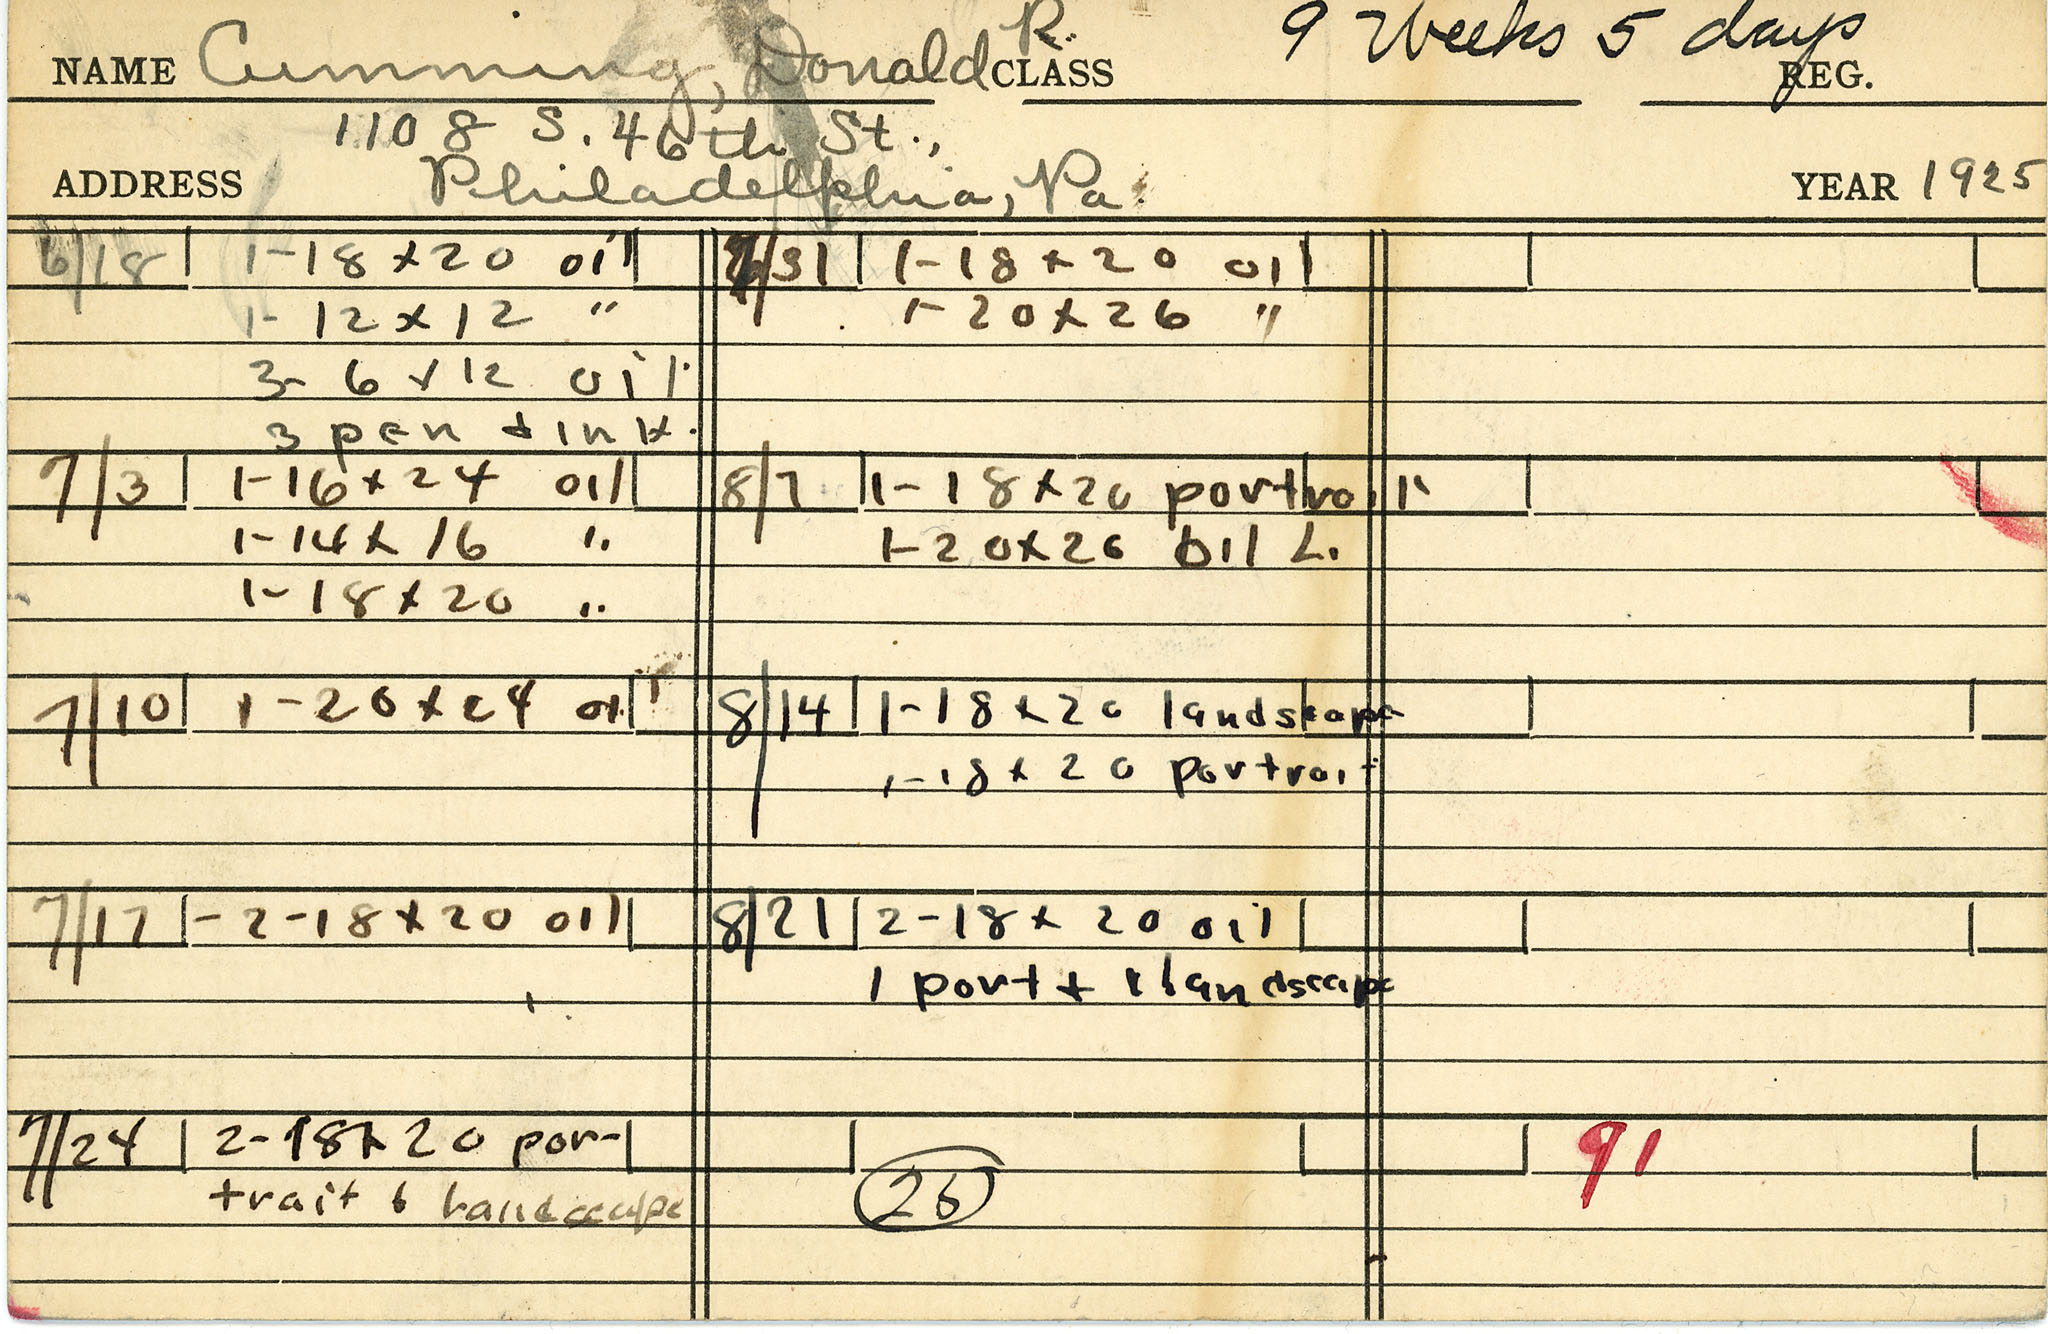 R. 9 Weeks 5 days
NAME Cumming, Donald CLASS REG.
1108 S. 46th St.,
ADDRESS Philadelphia, Pa. YEAR 1925
6/18 1-18x20 oil
1-12x12 "
3-6x12 oil
3 pen + ink.
7/3 1-16x24 oil
1-14x16 "
1-18x20 "
7/10 1-20x24 oil
7/17 -2-18x20 oil
7/24 2-18x20 por-
trait & Landscape
7/31 1-18x20 oil
1-20x26 "
8/7 1-18x20 portrait
1-20x26 oil L.
8/14 1-18x20 landscape
1-18x20 portrait
8/21 2-18x20 oil
1 port + 1 landscape
26
91